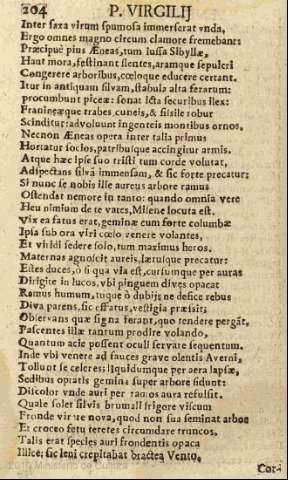 204 P. VIRGILIJ
Inter saxa virum spumosa immerserat vnda,
Ergo omnes magno circum clamore fremebant:
Præcipuè pius Æneas, tum iussa Sibyllæ,
Haut mora, festinant flentes, aramque sepulcri
Congerere arboribus, cœloque educere certant.
Itur in antiquam silvam, stabula alta ferarum:
procumbunt piceæ: sonat icta securibus ilex:
Fraxineæque trabes, cuneis, & fissile robur
Scinditur: advoluunt ingenteis montibus ornos.
Necnon Æneas opera inter talia primus
Hortatur socios, patribusque accingitur armis.
Atque hæc ipse suo tristi tum corde volutat,
Adspectans silvā immensam, & sic forte precatur:
Si nunc se nobis ille aureus arbore ramus
Ostendat nemore in tanto: quando omnia vere
Heu nimium de te vates, Misene locuta est.
Vix ea fatus erat, geminæ cum forte columbæ
Ipsa sub ora viri cœlo venere volantes,
Et viridi sedere solo, tum maximus heros.
Maternas agnoscit aureis, lætusque precatur:
Estes duces, ò si qua via est, cursumque per auras
Dirigite in lucos, vbi pinguem dives opacat
Ramus humum, tuque ò dubijs ne defice rebus
Diva parens, sic effatus, vestigia præssit;
Observans quæ signa ferant, quo tendere pergāt,
Pascentes illæ tantum prodire volando,
Quantum acie possent oculi servare sequentum.
Inde vbi venere ad fauces grave olentis Averni,
Tollunt se celeres; liquidumque per aera lapsæ,
Sedibus optatis gemina super arbore sidunt:
Discolor vnde auri per ramos aura refulsit.
Quale solet silvis brumali frigore viscum
Fronde virare nova, quod non sua seminat arbos
Et croceo fetu teretes circumdare truncos,
Talis erat species auri frondentis opaca
Illice; sic leni crepitabat bractea Vento,
Cor-
2010 Ministerio de Cultura